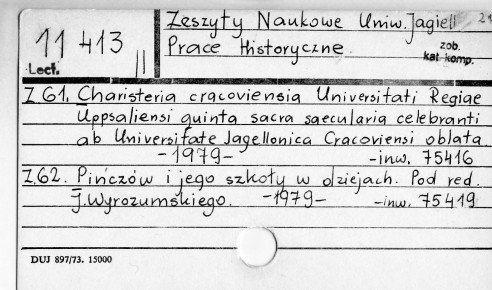 Zeszyty Naukowe Uniw. Jagiell
11 413 II
Prace Historyczne.
zob.
kat. komp.
Lect.
Z 61. Charisteria cracoviensia Universitati Regiae
Uppsaliensi quinta sacra saecularia celebranti
ab Universitate Jagellonica Cracoviensi oblata.
-1979- -inw. 75416
Z.62. Pińczów i jego szkoły w dziejach. Pod red.
J. Wyrozumskiego. -1979- -inw. 75419
DUJ 897/73. 15000